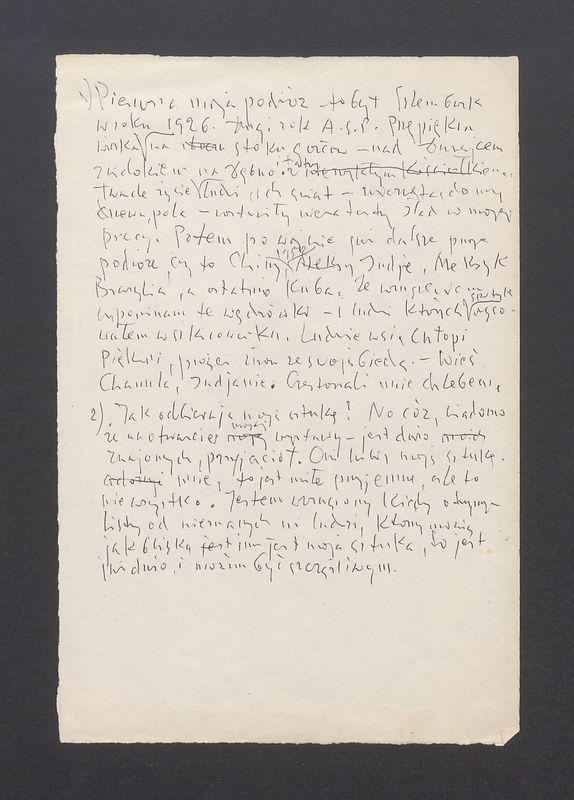 1) Pierwsza moja podróż to był Szlembark
w roku 1926. drugi rok A.S.P. Przepiękna
wioska na stoku gorców – nad Dunajcem
widokiem na Dębno i tatry
twarde życie ludzi ich świat – zwierzęta, domy
drzewa, pola – zostawiły ślad w mojej
pracy. Potem po wojnie już dalsze moje
podróże, czy to Chiny 1954, Indje, Meksyk
Brazylia, a ostatnio Kuba. Ze wzruszeniem
wspominam te wędrówki – i ludzi których szkico-
wałem w szkicowniku. Ludzie wsi, Chłopi
Piękni, prości, ze swoją biedą. – Wieś
Chamula, Indjanie. Częstowali mnie chlebem.
2). Jak odbierają moją sztukę? No cóż, wiadomo
że na otwarciu mojej moje wystawy – jest dużo moich
znajomych, przyjaciół. Oni lubią moją sztukę.
mnie, to jest miłe przyjemne, ale to
nie wszystko. Jestem wzruszony kiedy otrzymuję
listy od nieznanych mi ludzi, którzy mówią
jak bliską jest im jest moja sztuka, to jest
już dużo, i można być szczęśliwym.